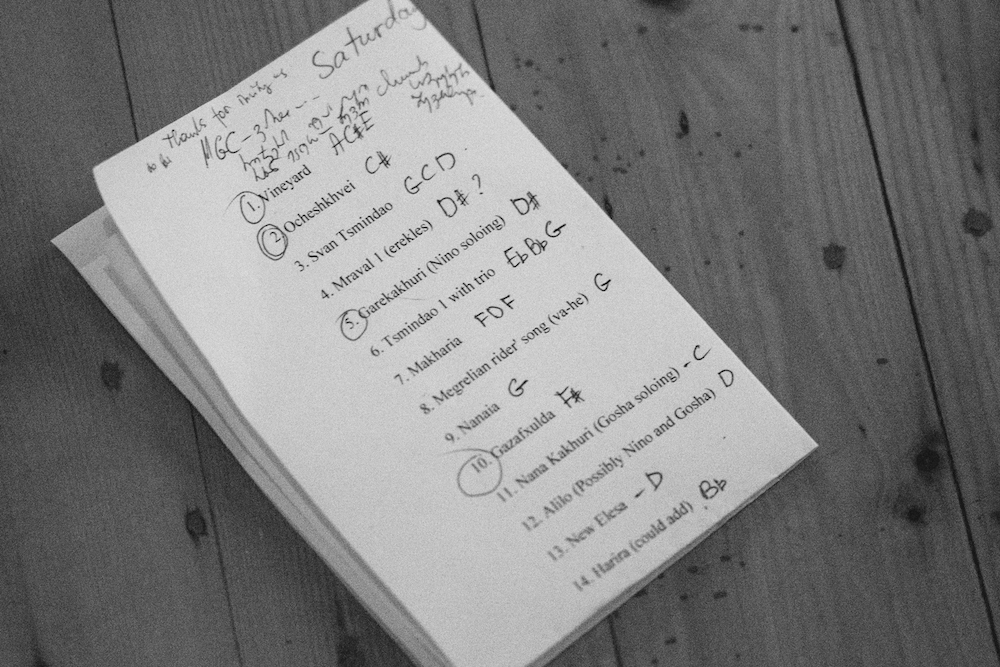 Saturday
thanks for inviting us
MGC-3
church
1. Vineyard AC#E
2. Ocheshkhvei C#
3. Svan Tsmindao GCD
4. Mraval 1 (erekles) D#?
5. Garekakhuri (Nino soloing) D#
6. Tsmindao 1 with trio EbBbG
7. Makharia FDF
8. Megrelian rider' song (va-he) G
9. Nanaia G
10. Gazafxulda F#
11. Nana Kakhuri (Gosha soloing) - C
12. Alilo (Possibly Nino and Gosha) D
13. New Elesa - D
14. Harira (could add) Bb